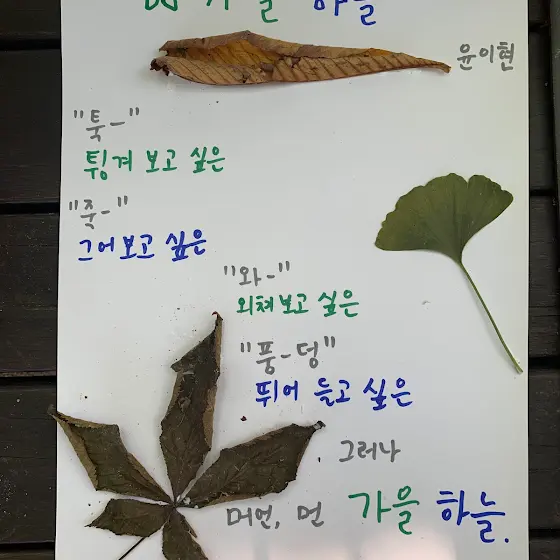 가을 하늘
윤이현
"툭-"
튕겨 보고 싶은
"죽-"
그어보고 싶은
"와-"
외쳐보고 싶은
"풍-덩"
뛰어 들고 싶은
그러나
머언, 먼 가을 하늘.